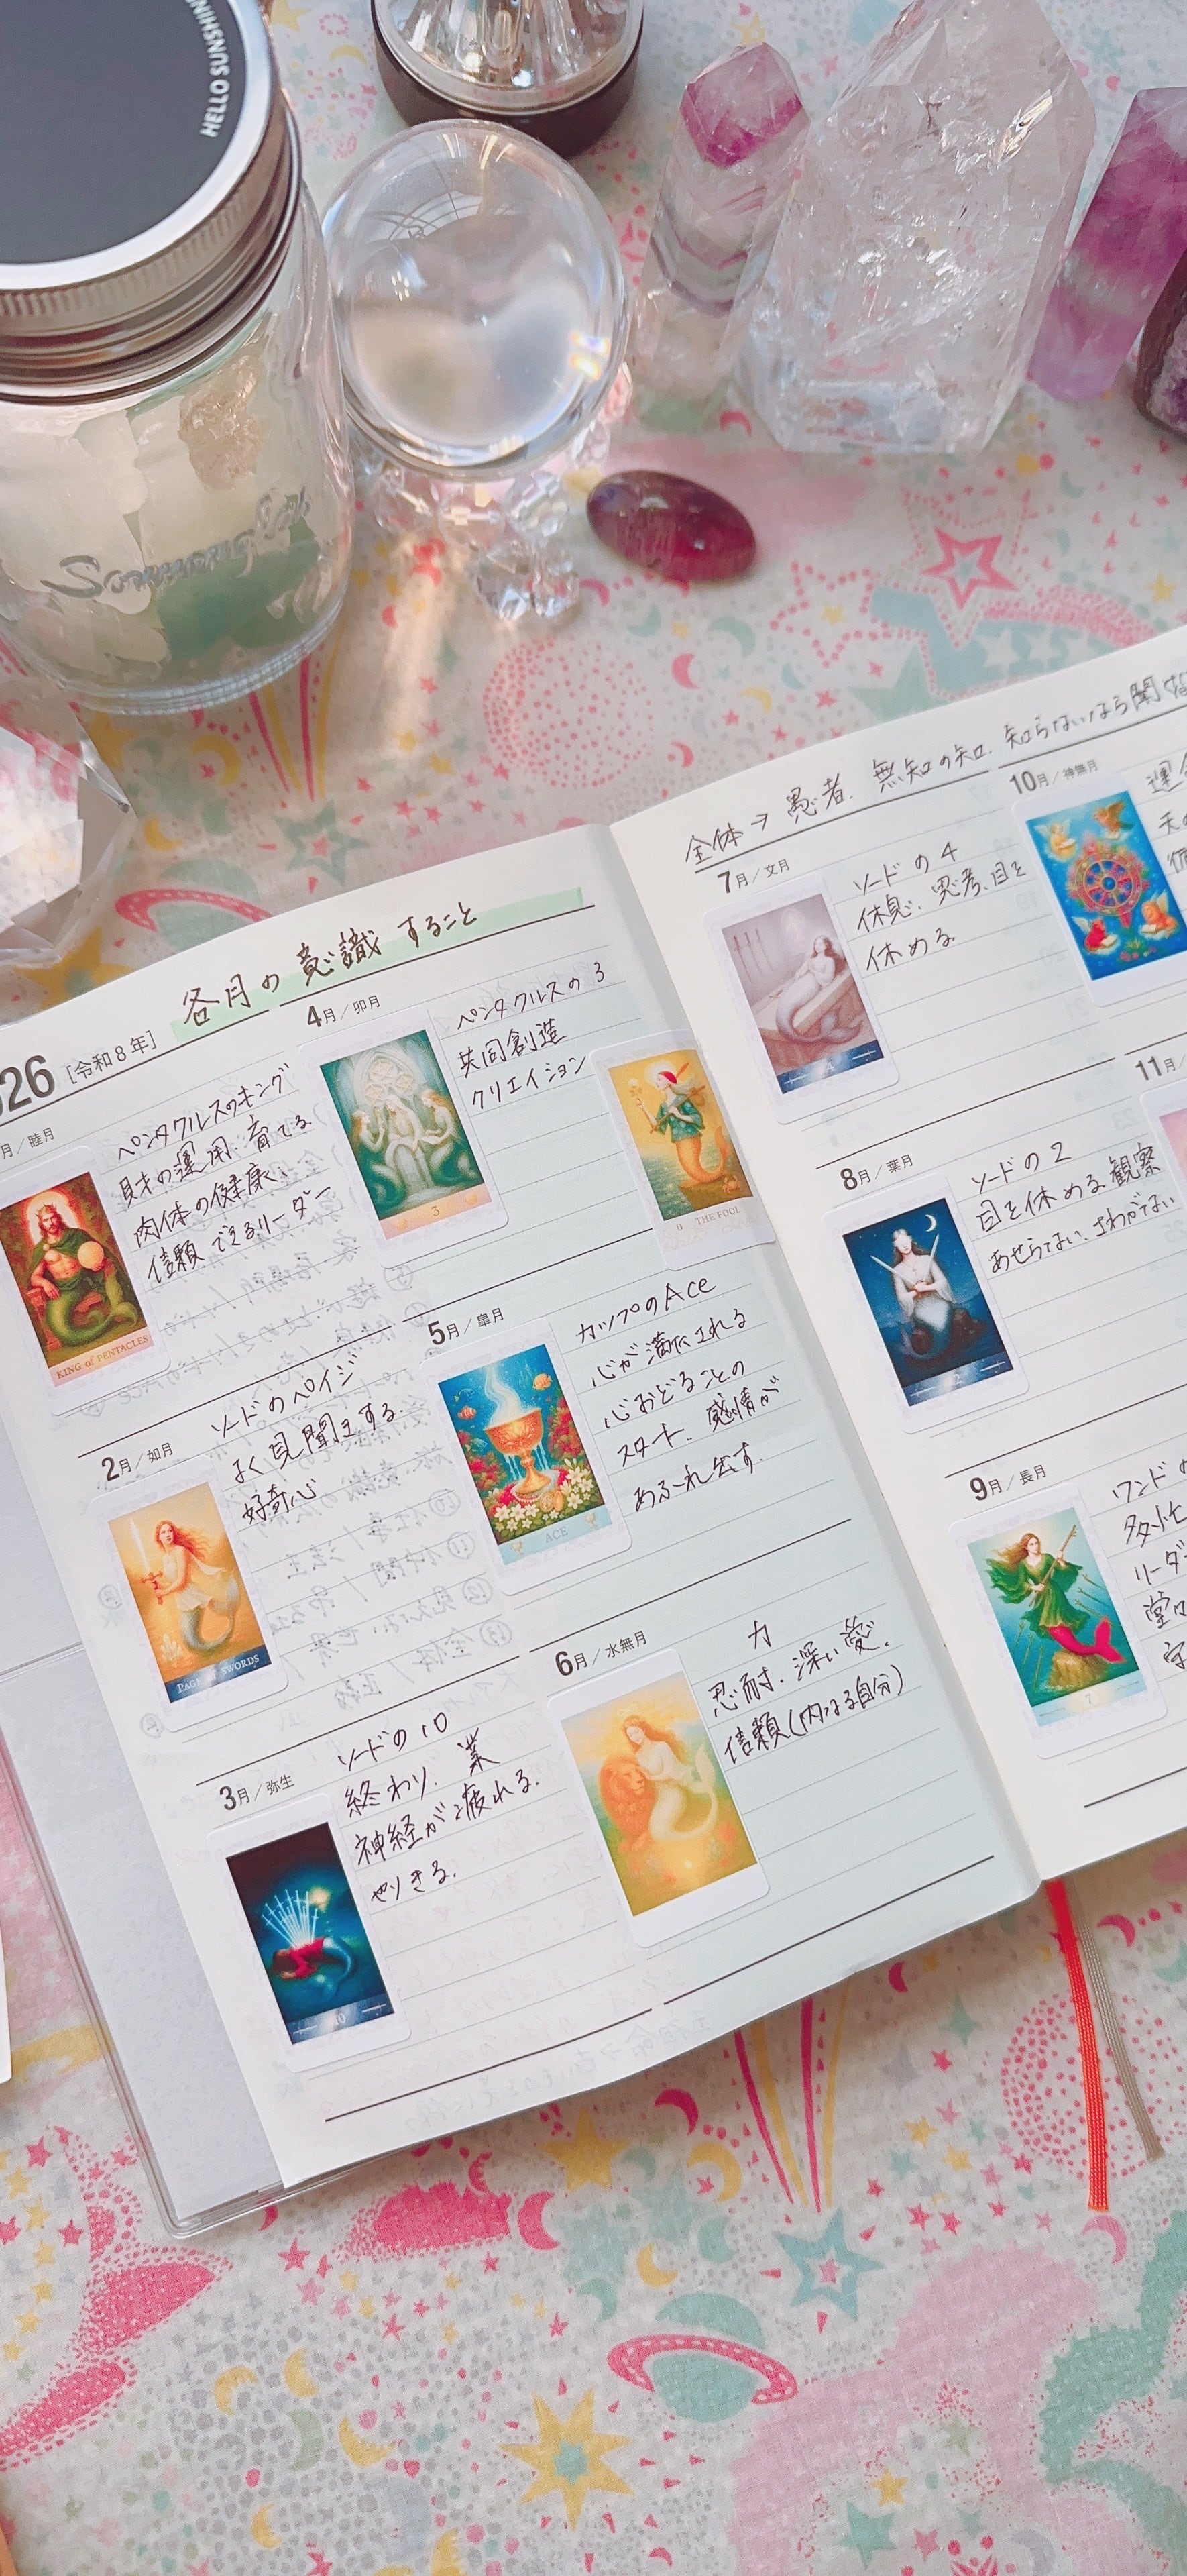 HELLO SUNSHIN
026 [令和8年] 各月の意識すること
月/睦月
ペンタクルスのキング
財の運用、育てる
肉体の健康、
信頼できるリーダー
KING of PENTACLES
2月/如月
ソードのペイジ
よく見聞きする。
好奇心
PAGE of SWORDS
3月/弥生
ソードの10
終わり. 業
神経が疲れる.
やりきる.
10
4月/卯月
ペンタクルスの3
共同創造
クリエイション
3
0 THE FOOL
5月/皐月
カップのAce
心が満たされる
心おどることの
スタート. 感情が
あふれ出す.
ACE
6月/水無月
力
忍耐. 深い愛.
信頼(内なる自分)
全体→愚者. 無知の知. 知らないなら聞
7月/文月
ソードの4
休息、思考、目を
休める
4
8月/葉月
ソードの2
目を休める 観察
あせらない、さわがない
2
9月/長月
ワンドの
多忙
リーダ
堂
守
7
10月/神無月
運
天の
11月/